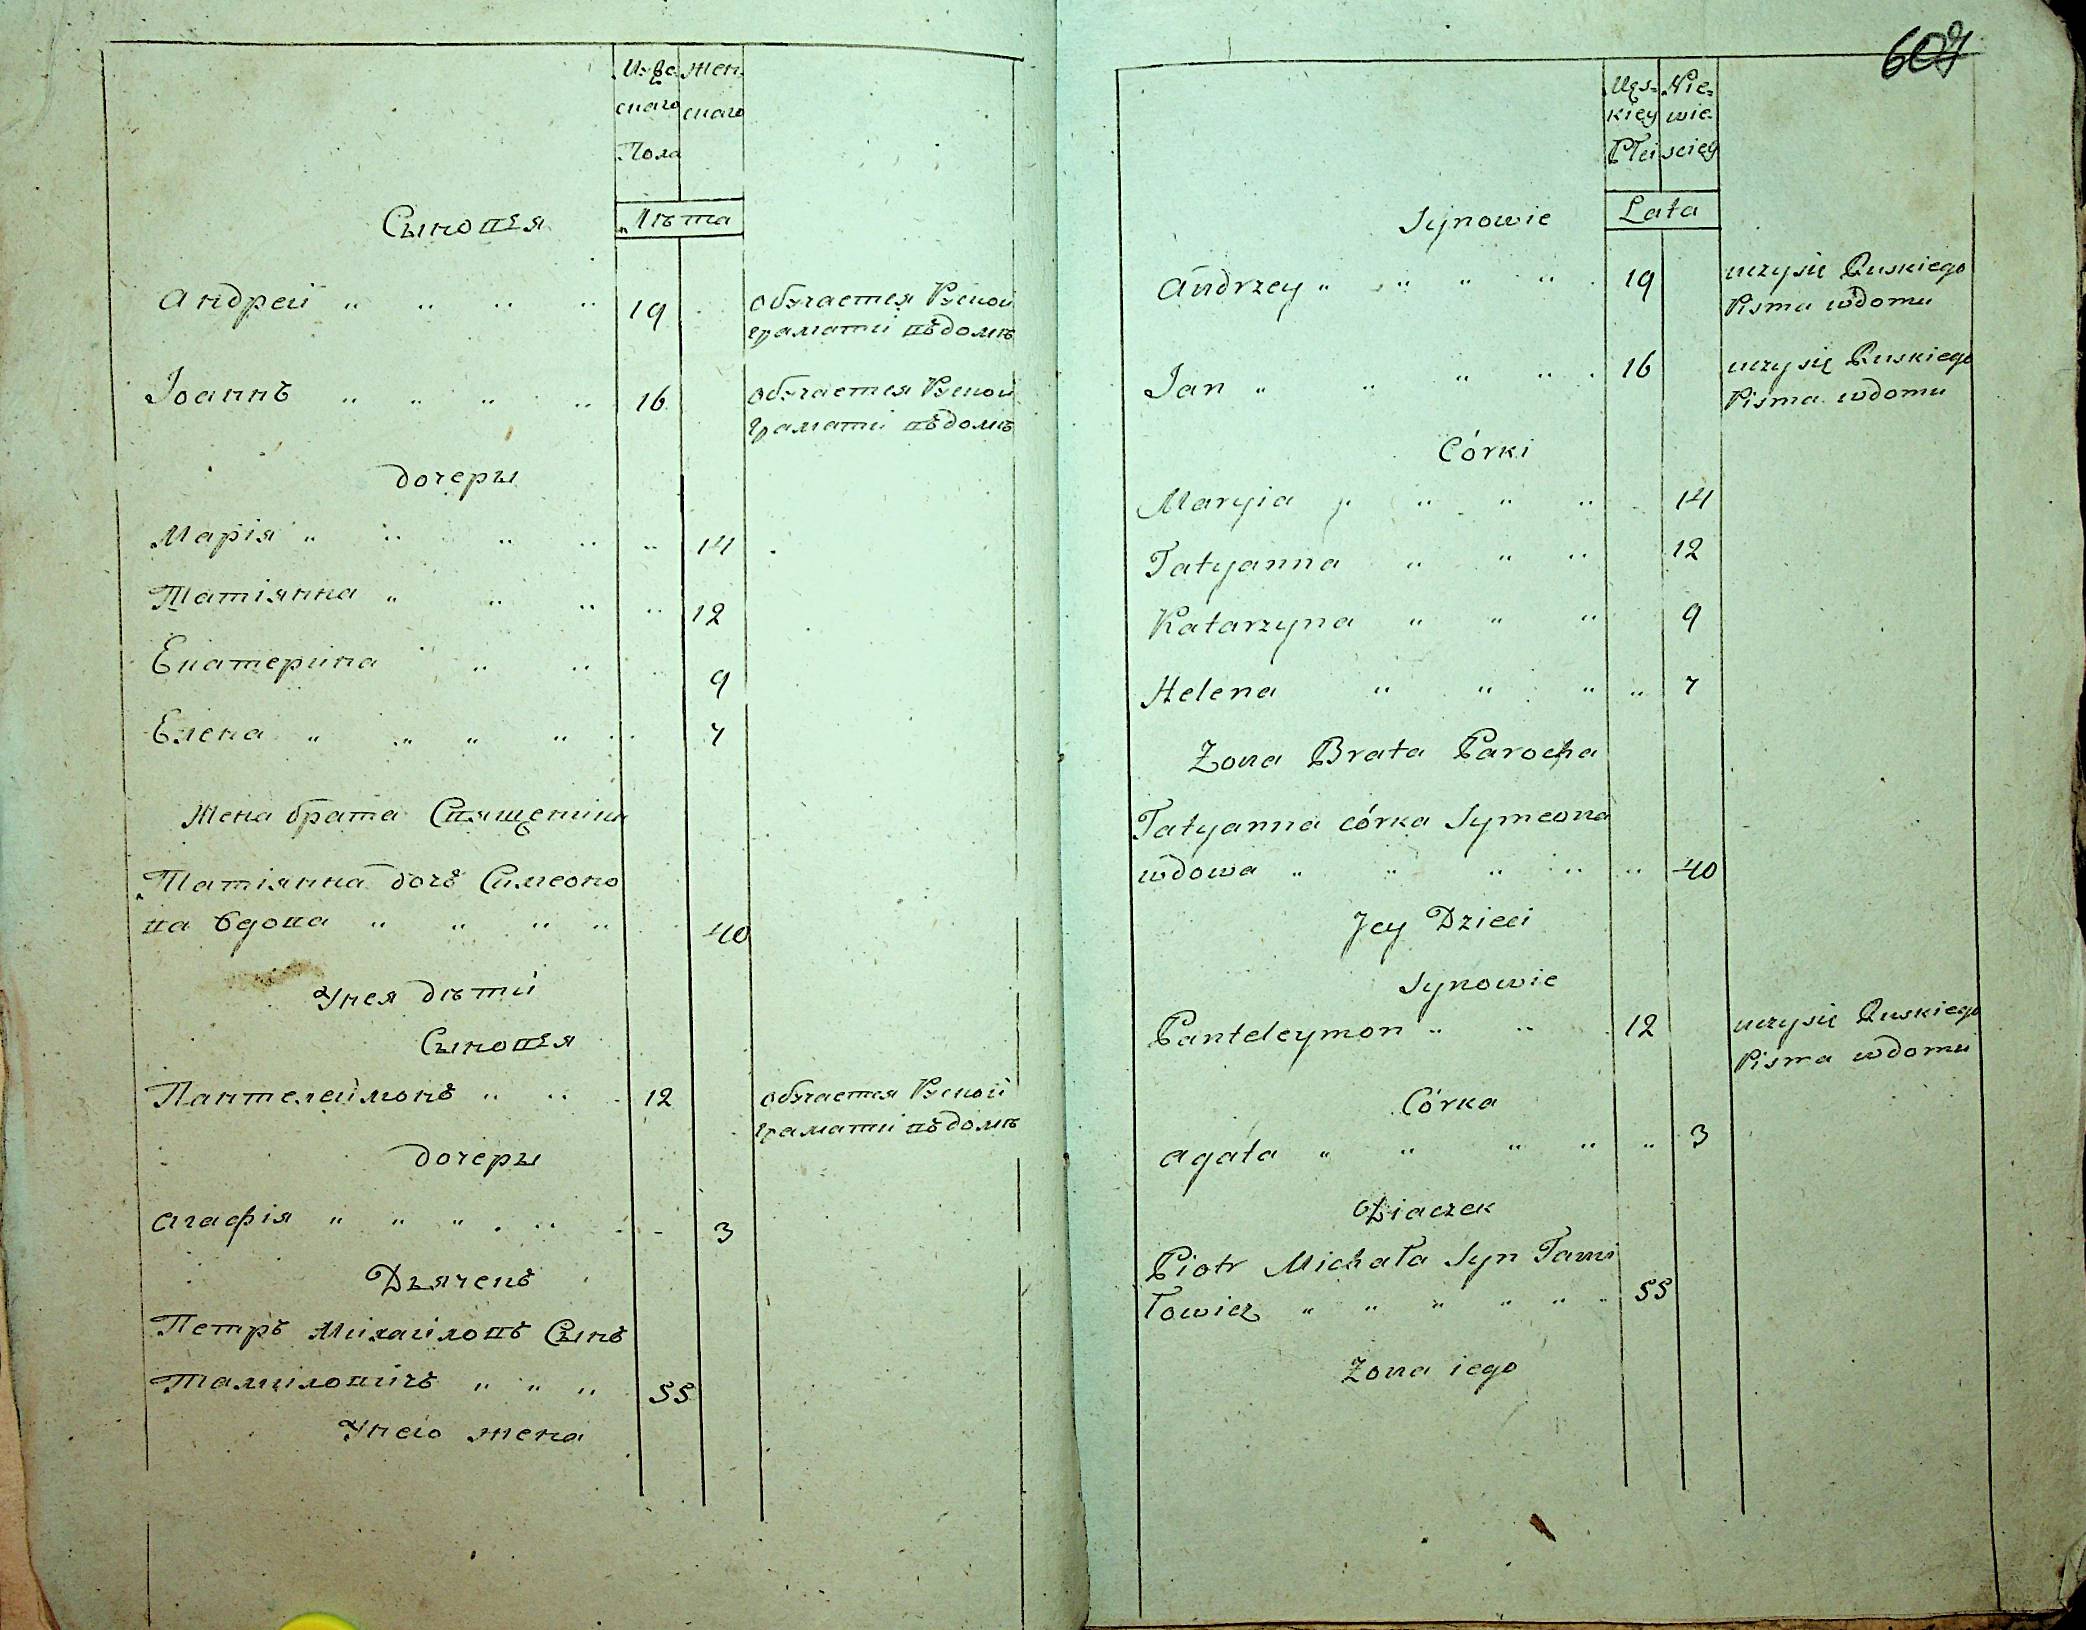 Мʊже Жен
скаго скаго
Пола
Лѣта
Сыновья
Андрей " " " " 19 обʊчается Рʊской
граматы въдомѣ
Іоаннъ " " " " 16 обʊчается Рʊской
граматы въдомѣ
дочеры
Марія " " " " " 14
Татіянна " " " " 12
Екатерина " " " 9
Елена " " " " 7
Жена брата Священника
Татіянна дочъ Симеоно
ва вдова " " " " 40
Унея дѣти
Сыновья
Пантелеймонъ " " 12 обʊчается Рʊской
граматы въдомѣ
дочеры
Агафія " " " " 3
Дьячекъ
Петръ Михаиловъ Сынъ
Тамиловичъ " " " 55
Унего жена
607
Męs= Nie=
kiey wie
Płci sciey
Lata
Synowie
Andrzey " " " " 19 uczysię Ruskiego
Pisma wdomu
Jan " " " " 16 uczysię Ruskiego
Pisma wdomu
Córki
Maryia " " " " 14
Tatyanna " " " 12
Katarzyna " " " 9
Helena " " " " 7
Zona Brata Parocha
Tatyanna córka Symeona
wdowa " " " " " 40
Jey Dzieci
Synowie
Panteleymon " " 12 uczysię Ruskiego
Pisma wdomu
Córka
Agata " " " " " 3
Dziaczek
Piotr Michała Syn Tami
łowicz " " " " " " 55
Zona iego